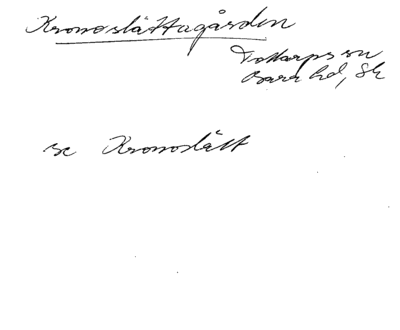 Kronoslättagården
Tottarps sn
Bara hd, Sk
se Kronoslätt